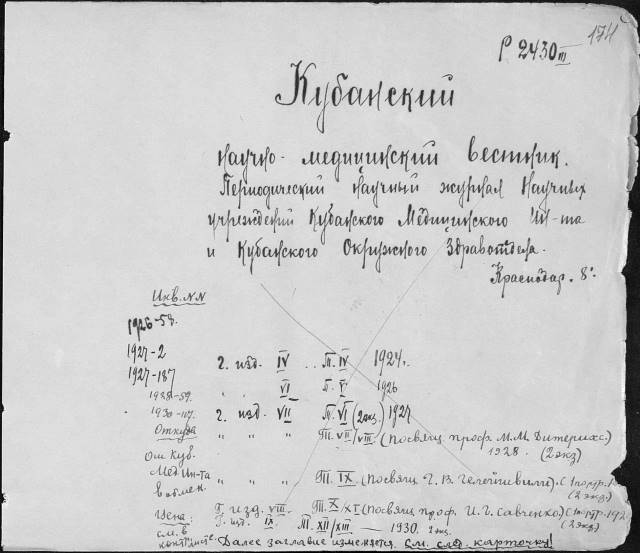 174
Р 2430 III
Кубанский
научно-медицинский вестник.
Периодический научный журнал Научных
учреждений Кубанского Медицинского Ин-та
и Кубанского Окружного Здравотдела.
Краснодар. 8°.
Инв. NN
1926-58.
1927-2 г. изд. IV .. Т. IV 1924 г.
1927-187 " " VI Т. V 1926
1928-59.
1930-117. г. изд. VII Т. VI (2 экз.) 1927
Откуда " " " Т. VII/VIII. (посвящ. проф. М.М. Дитерихс.)
1928. (2 экз)
От Куб.
Мед Ин-та " " " Т. IX (посвящ. Г. В. Гелейшвили)
в обмен. (2 экз.)
Цена: Г. изд. VIII. Т. X/XI (посвящ. проф. И. Г. Савченко)
(2 экз)
см. в Г. изд. IX. Т. XII/XIII — 1930. 2 экз.
Далее заглавие изменяется. См. след. карточку!